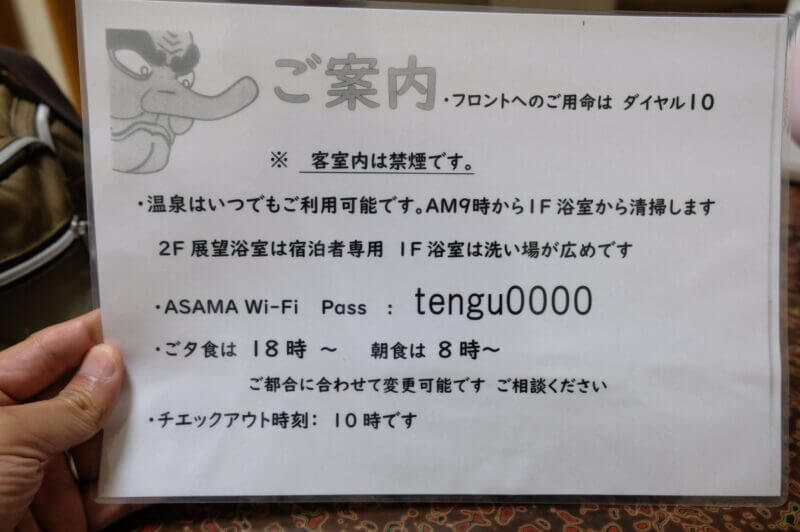 ご案内 ・フロントへのご用命は ダイヤル10
※ 客室内は禁煙です。
・温泉はいつでもご利用可能です。AM9時から1F浴室から清掃します
2F展望浴室は宿泊者専用 1F浴室は洗い場が広めです
・ASAMA Wi-Fi Pass : tengu0000
・ご夕食は 18時 ～ 朝食は 8時～
ご都合に合わせて変更可能です ご相談ください
・チエックアウト時刻: 10時です